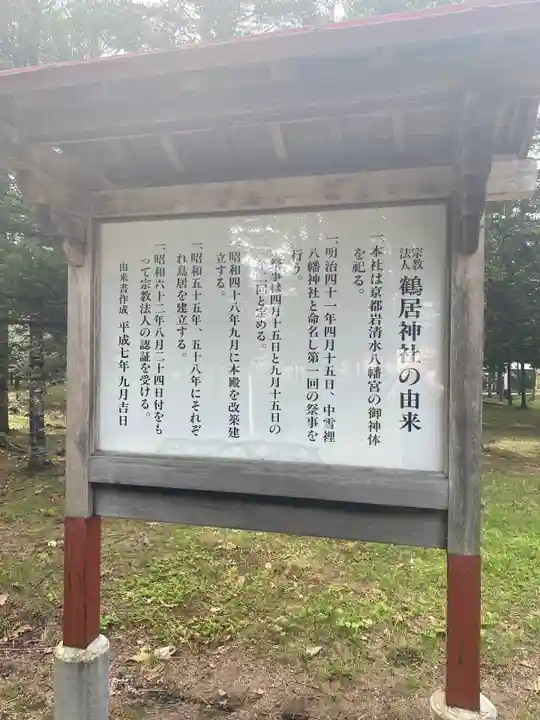 宗教法人 鶴居神社の由来
一、本社は京都岩清水八幡宮の御神体
を祀る。
一、明治四十一年四月十五日、中雪裡
八幡神社と命名し第一回の祭事を
行う。
祭事は四月十五日と九月十五日の
回と定める。
昭和四十八年九月に本殿を改築建
立する。
一、昭和五十五年、五十八年にそれぞ
れ鳥居を建立する。
一、昭和六十二年八月二十四日付をも
って宗教法人の認証を受ける。
由来書作成 平成七年九月吉日